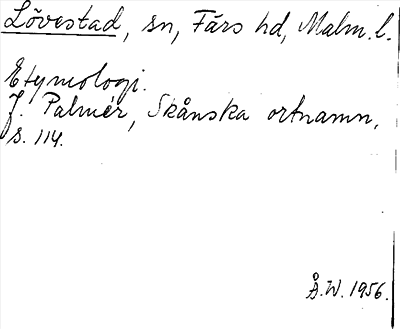 Lövestad, sn, Färs hd, Malm. l.
Etymologi.
J. Palmér, Skånska ortnamn,
s. 114.
Å.W. 1956.